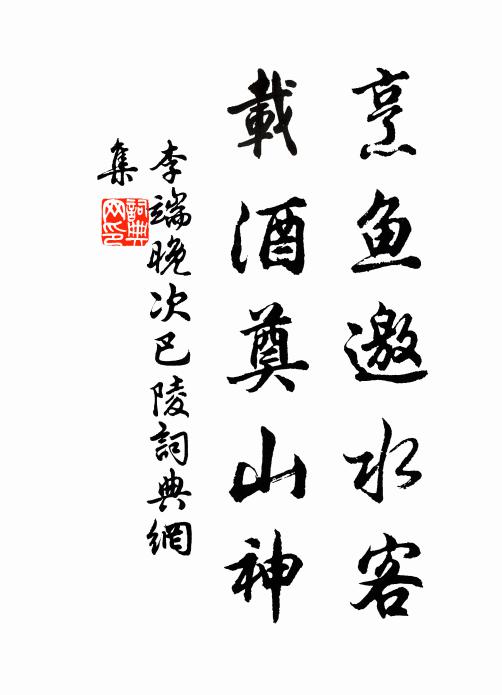 烹魚邀水客
載酒奠山神
李端晚次巴陵詞典網
集
詞典
网印